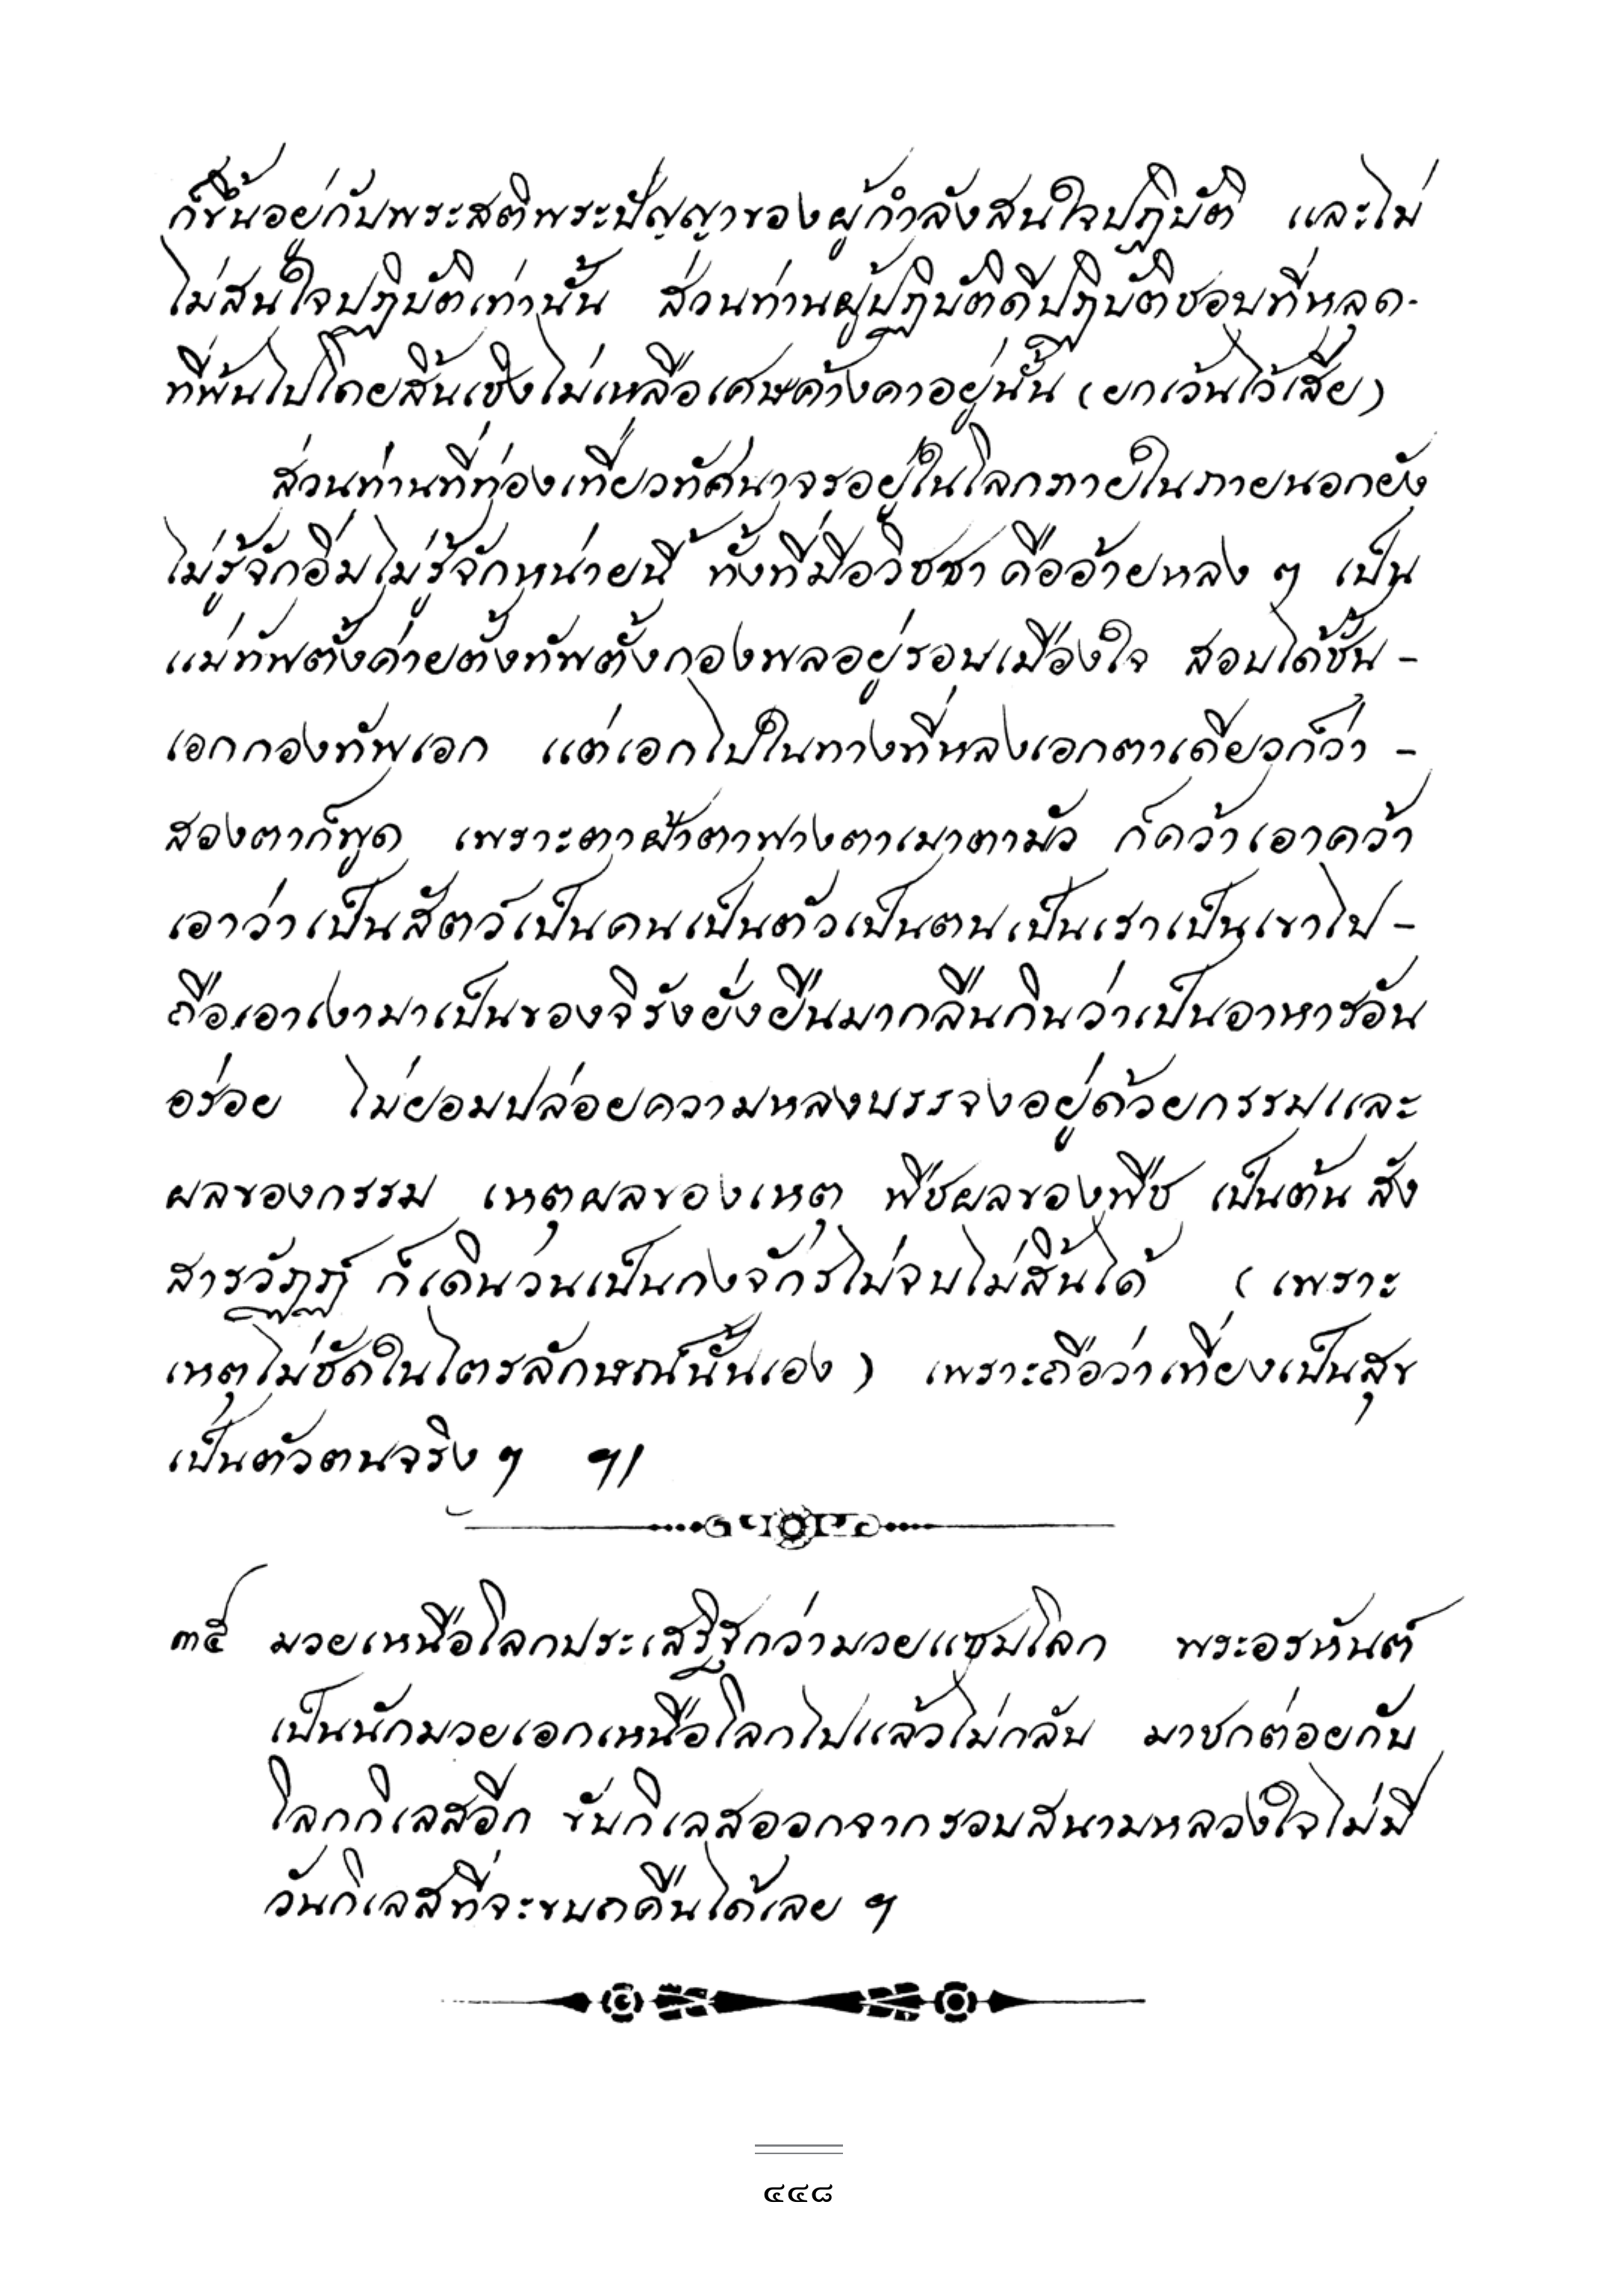 ก็ขึ้นอยู่กับพระสติพระปัญญาของผู้กำลังสนใจปฏิบัติ และไม่
ไม่สนใจปฏิบัติเท่านั้น ส่วนท่านผู้ปฏิบัติดีปฏิบัติชอบที่หลุด-
ที่พ้นไปโดยสิ้นเชิงไม่เหลือเศษค้างคาอยู่นั้น (ยกเว้นไว้เสีย)
ส่วนท่านที่ท่องเที่ยวทัศนาจรอยู่ในโลกภายในภายนอกยัง
ไม่รู้จักอิ่มไม่รู้จักหน่ายนี้ ทั้งที่มีอวิชชา คืออ้ายหลง ๆ เป็น
แม่ทัพตั้งค่ายตั้งทัพตั้งกองพลอยู่รอบเมืองใจ สอบได้ชั้น -
เอกกองทัพเอก แต่เอกไปในทางที่หลงเอกตาเดียวก็ว่า -
สองตาก็พูด เพราะตาฝ้าตาฟางตาเมาตามัว ก็คว้าเอาคว้า
เอาว่าเป็นสัตว์เป็นคนเป็นตัวเป็นตนเป็นเราเป็นเขาไป -
ถือเอาเงามาเป็นของจิรังยั่งยืนมากลืนกินว่าเป็นอาหารอัน
อร่อย ไม่ยอมปล่อยความหลงบรรจงอยู่ด้วยกรรมและ
ผลของกรรม เหตุผลของเหตุ พืชผลของพืช เป็นต้น สัง
สารวัฏฏ์ ก็เดินวนเป็นกงจักรไม่จบไม่สิ้นได้ ( เพราะ
เหตุไม่ชัดในไตรลักษณ์นั้นเอง ) เพราะถือว่าเที่ยงเป็นสุข
เป็นตัวตนจริง ๆ ฯ|
๓๕ มวยเหนือโลกประเสริฐกว่ามวยแชมโลก พระอรหันต์
เป็นนักมวยเอกเหนือโลกไปแล้วไม่กลับ มาชกต่อยกับ
โลกกิเลสอีก ขับกิเลสออกจากรอบสนามหลวงใจไม่มี
วันกิเลสที่จะขบถคืนได้เลย ฯ
๔๔๘